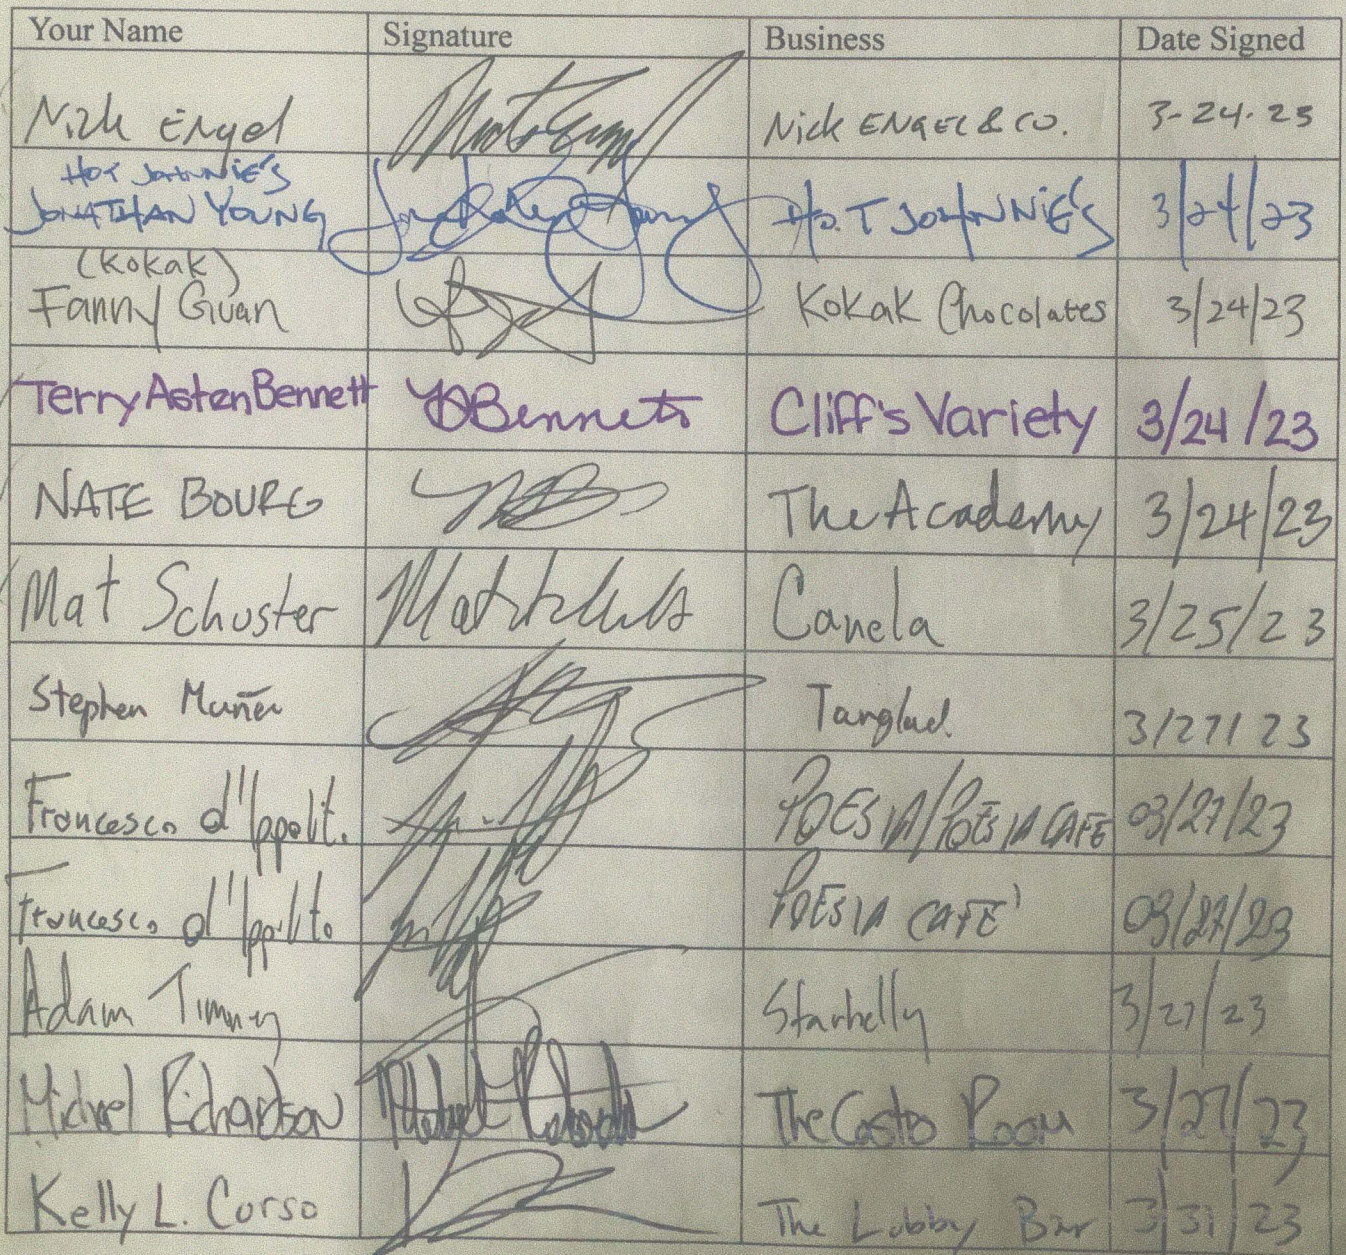 Your Name Signature Business Date Signed
Nick Engel Nick ENGEL & CO. 3-24-23
HOT JOHNNIE'S
JONATHAN YOUNG HOT JOHNNIE'S 3/24/23
(Kokak)
Fanny Guan Kokak Chocolates 3/24/23
Terry Asten Bennett TABennett Cliff's Variety 3/24/23
NATE BOURG The Academy 3/24/23
Mat Schuster Canela 3/25/23
Stephen Tanglad 3/27/23
Francesco d'Ippolito POESIA/POESIA CAFE 03/27/23
Francesco d'Ippolito POESIA CAFE' 03/27/23
Adam Timney Starbelly 3/27/23
Michael Richardson The Castro Room 3/27/23
Kelly L. Corso The Lobby Bar 3/31/23